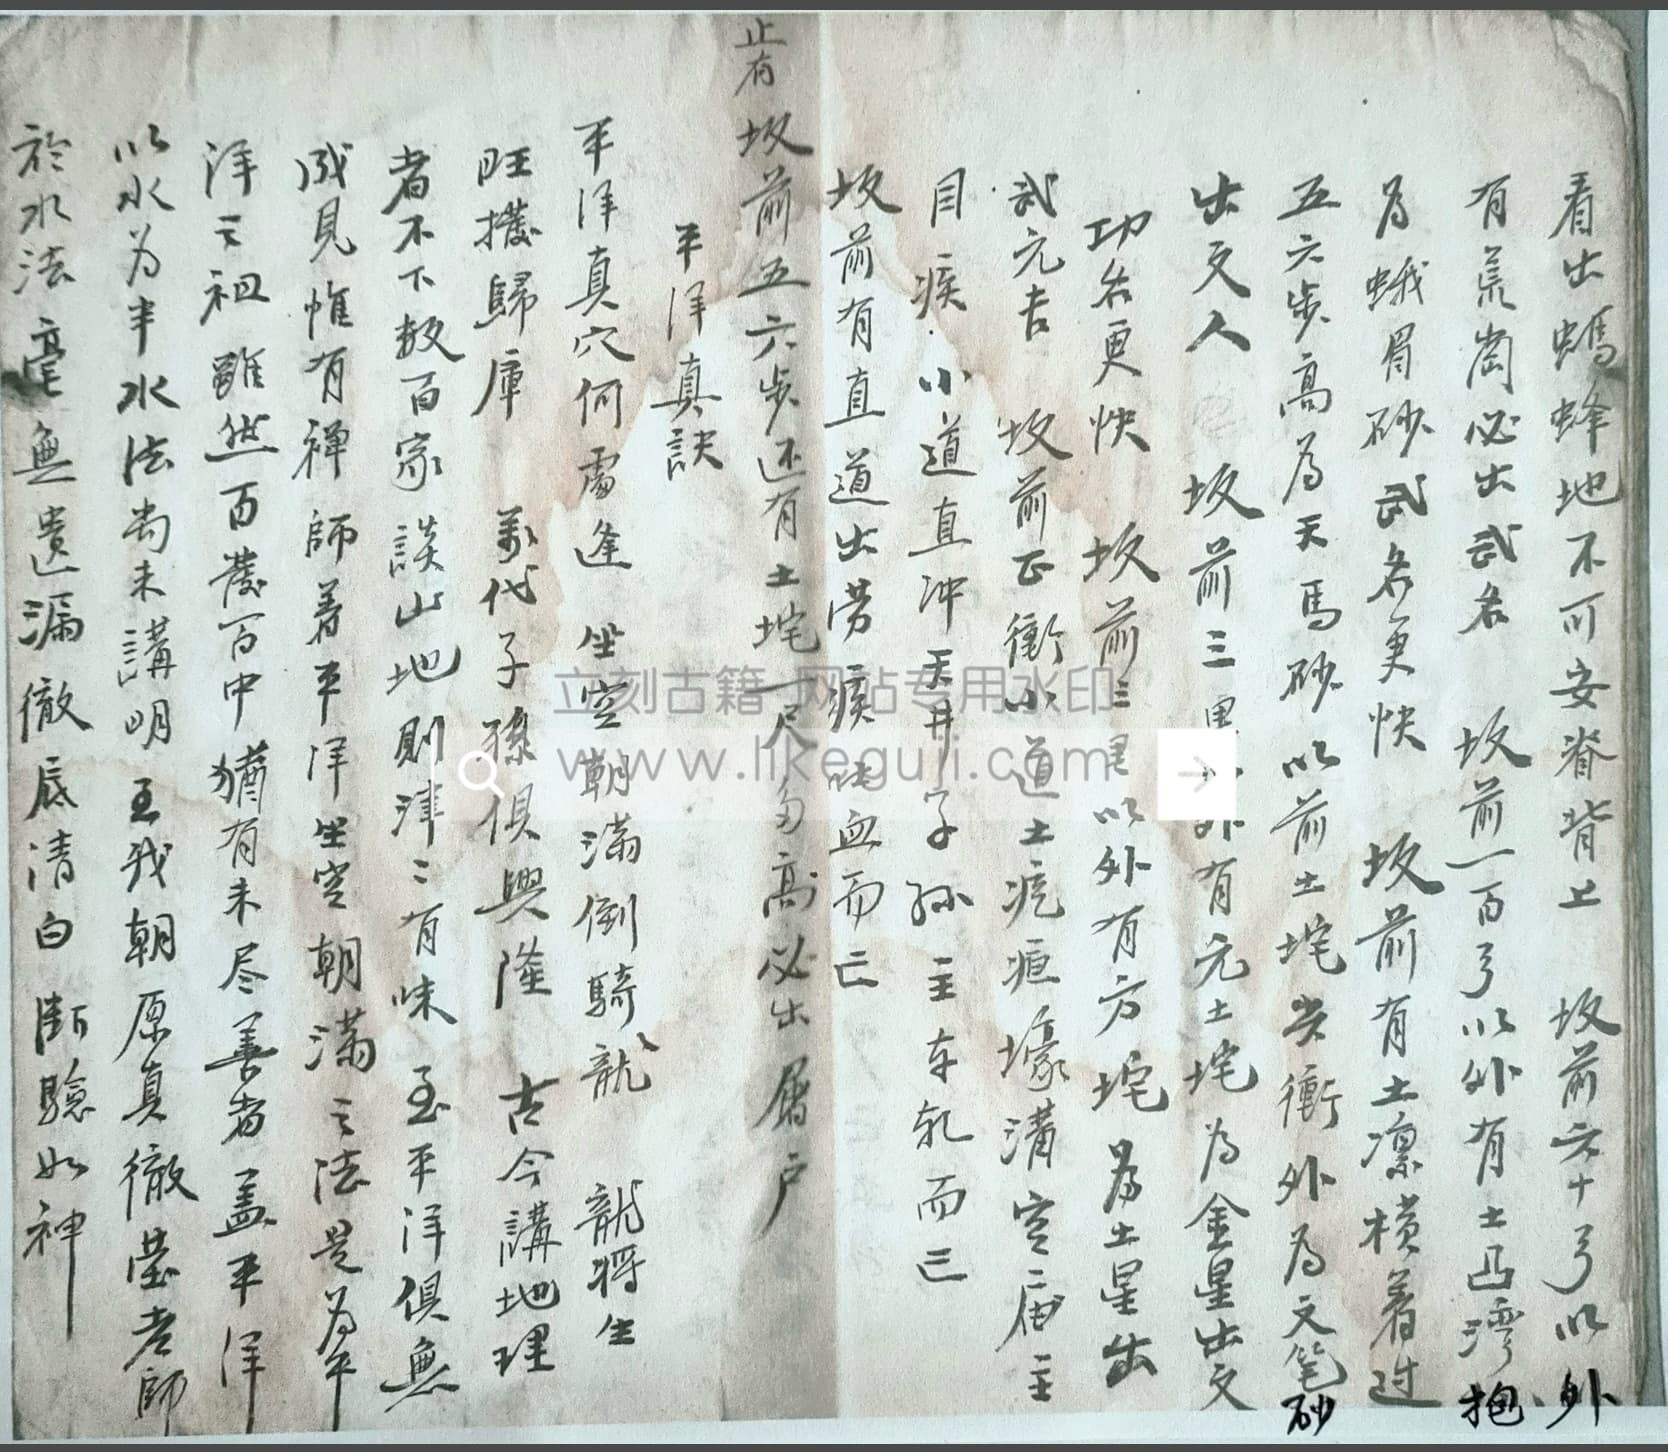 看出螞蜂地不可安脊背上　坟前六十弓以外
有荒崗必出武名　坟前一百弓以外有土凸湾抱
为蛾眉砂武名更快　坟前有土凛横着过
五六步高為天馬砂以前土垞尖衝外為文笔砂
出文人　坟前三里以外有元土垞为金星出文
功名更快　坟前三里以外有方垞為土星出
武元吉　坟前正衝小道土疙疸壕溝宫庙主
目疾　小道直冲天井字孙主车轧而亡
坟前有直道出劳疾吐血而亡
止有坟前五六步还有土垞一尺多高必出屠户
平洋真訣
平洋真穴何處逢　坐空朝滿倒騎龍　龍将生
旺攏歸庫　萬代子孫俱興隆　古今講地理
者不下数百家談山地則津三有味　至平洋俱無
成見惟有禅師着平洋坐空朝滿之法是为平
洋之祖雖然百發百中猶有未尽善者蓋平洋
以水为半水法尚未講明至我朝原真徹瑩老師
於水法毫無遺漏徹底清白断驗如神
立刻古籍 网站专用水印
www.likeguji.com